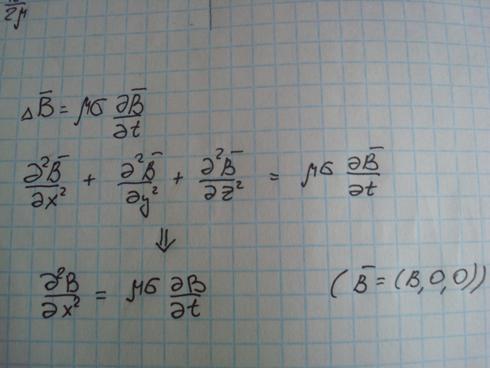 2μ
△B̄ = μσ ∂B̄/∂t
∂²B̄/∂x² + ∂²B̄/∂y² + ∂²B̄/∂z² = μσ ∂B̄/∂t
⇓
∂²B/∂x² = μσ ∂B/∂t (B̄ = (B,0,0))